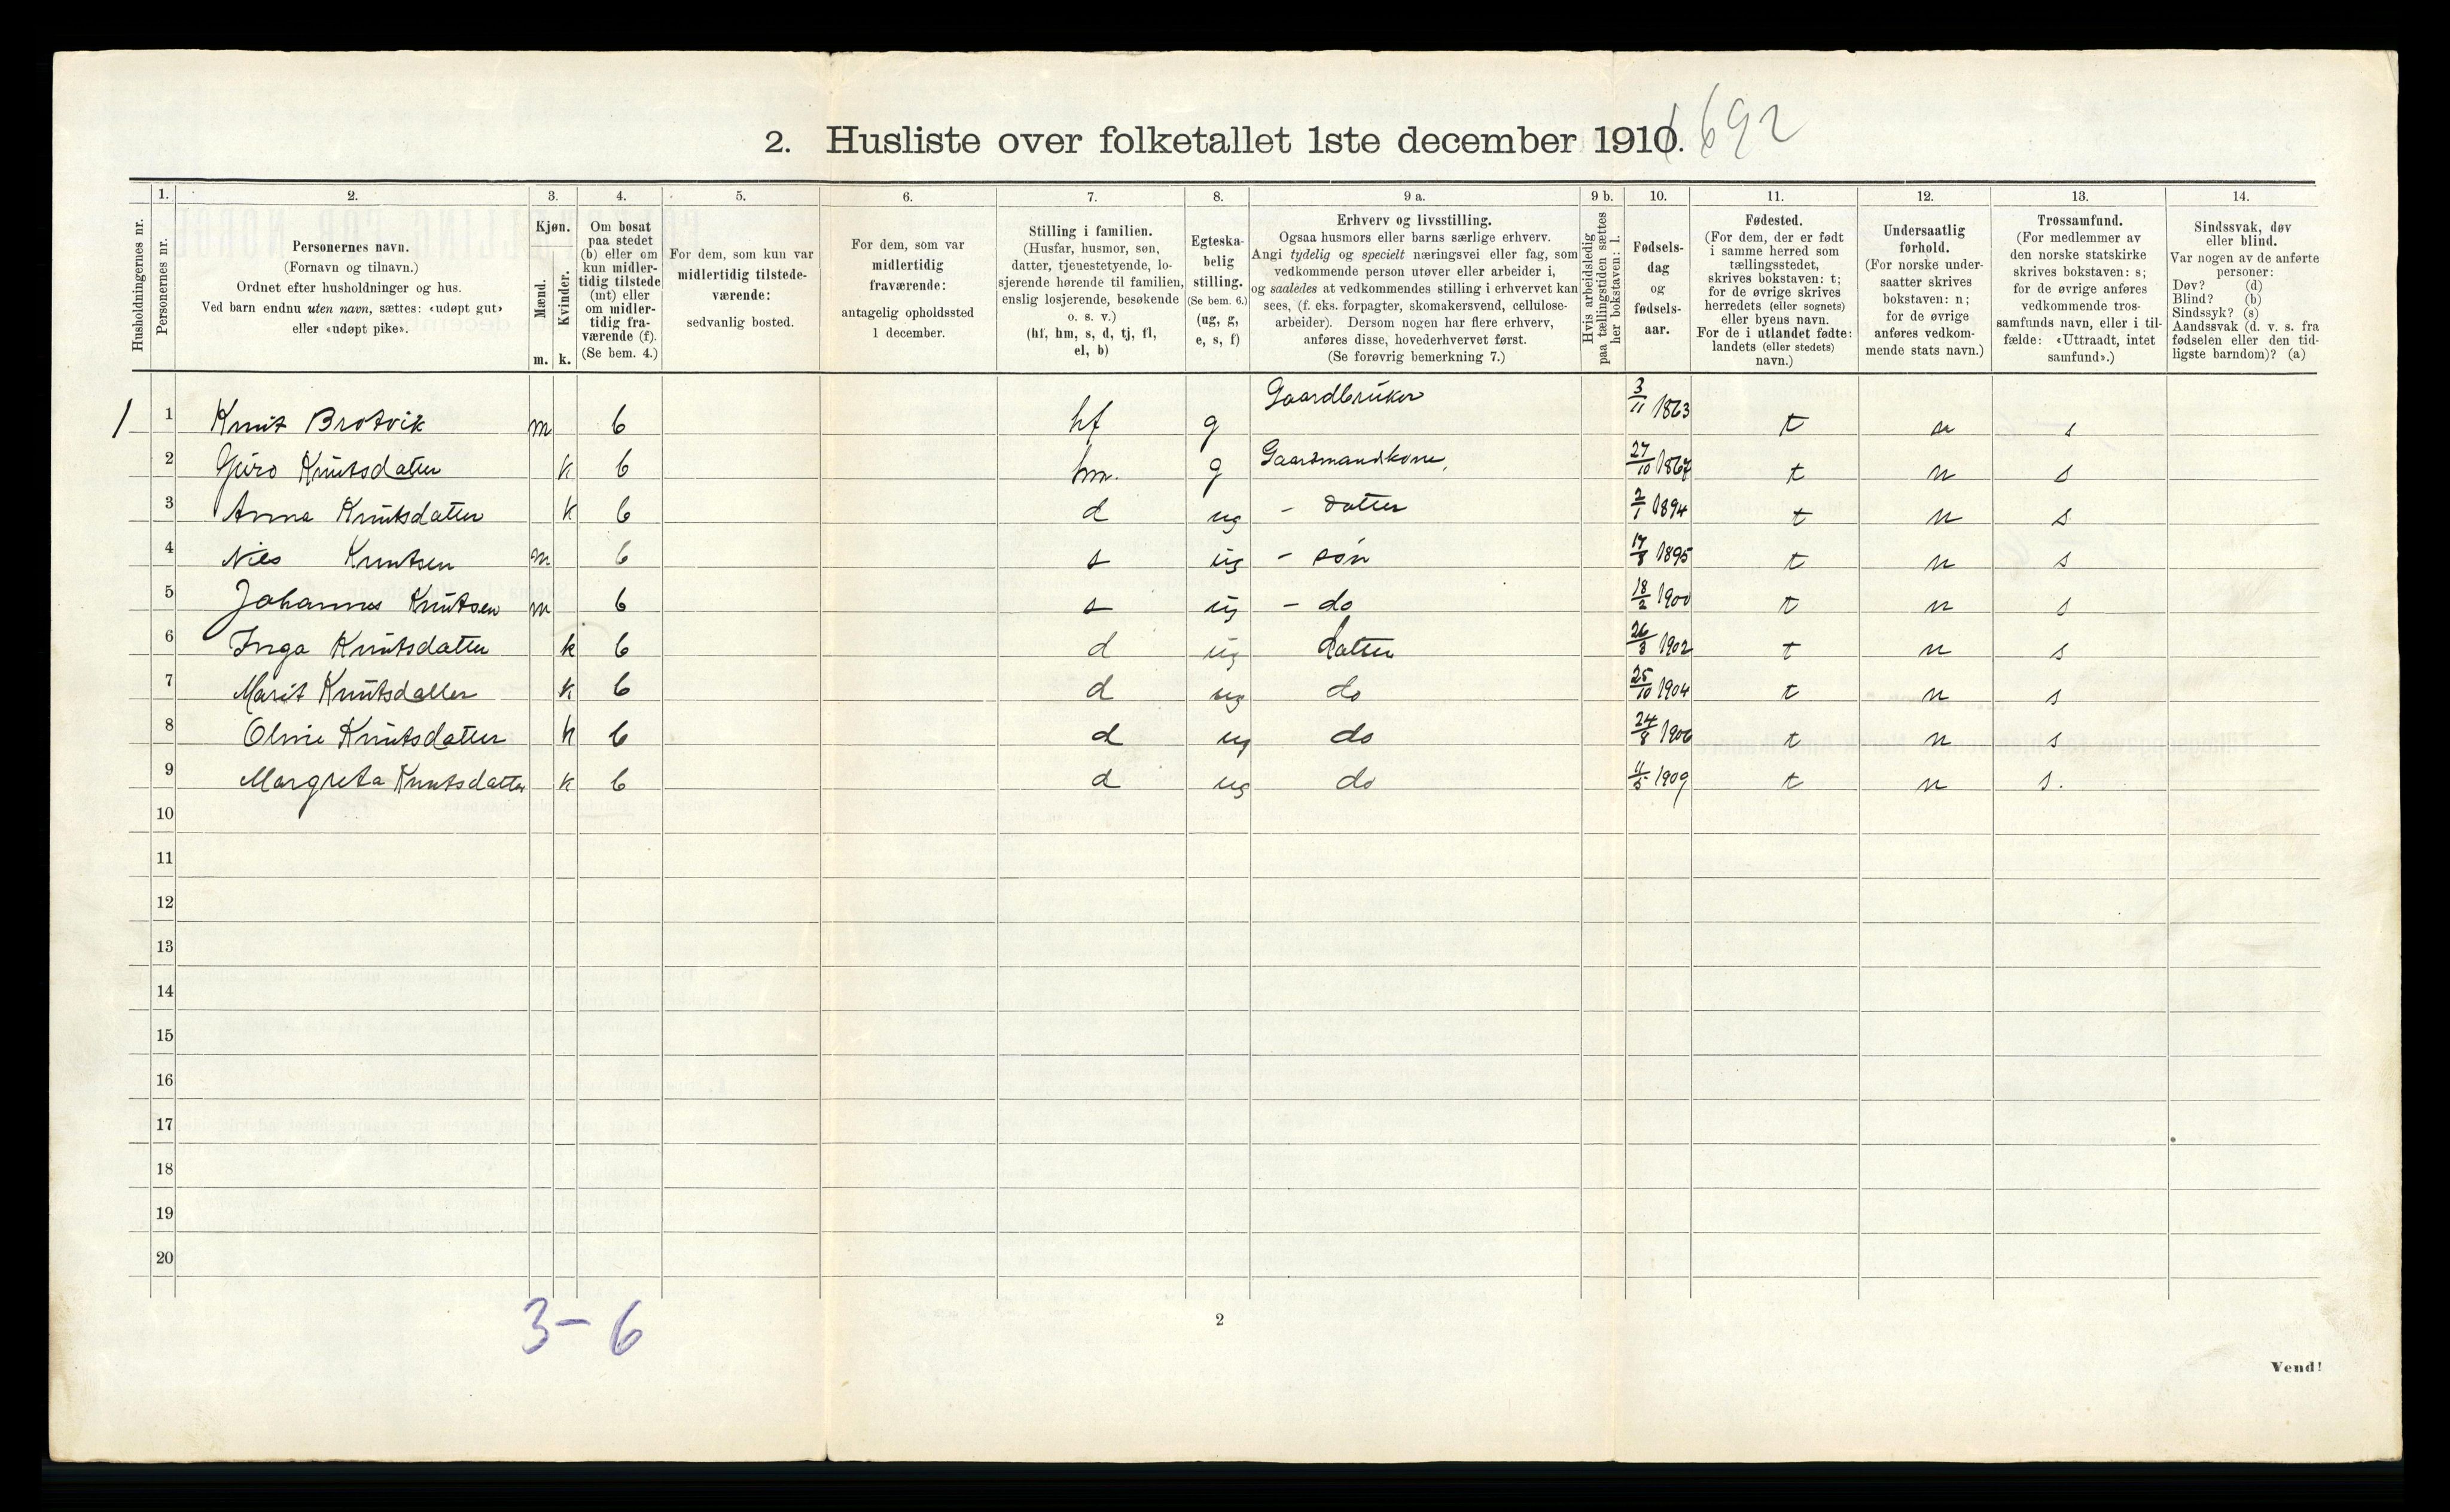 2. Husliste over folketallet 1ste december 1910. 1692
Husholdningernes nr.
1.
Personernes nr.
2.
Personernes navn.
(Fornavn og tilnavn.)
Ordnet efter husholdninger og hus.
Ved barn endnu uten navn, sættes: «udøpt gut»
eller «udøpt pike».
3.
Kjøn.
Mænd.
Kvinder.
m. k.
4.
Om bosat
paa stedet
(b) eller om
kun midler-
tidig tilstede
(mt) eller
om midler-
tidig fra-
værende (f).
(Se bem. 4.)
5.
For dem, som kun var
midlertidig tilstede-
værende:
sedvanlig bosted.
6.
For dem, som var
midlertidig
fraværende:
antagelig opholdssted
1 december.
7.
Stilling i familien.
(Husfar, husmor, søn,
datter, tjenestetyende, lo-
sjerende hørende til familien,
enslig losjerende, besøkende
o. s. v.)
(hf, hm, s, d, tj, fl,
el, b)
8.
Egteska-
belig
stilling.
(Se bem. 6.)
(ug, g,
e, s, f)
9 a.
Erhverv og livsstilling.
Ogsaa husmors eller barns særlige erhverv.
Angi tydelig og specielt næringsvei eller fag, som
vedkommende person utøver eller arbeider i,
og saaledes at vedkommendes stilling i erhvervet kan
sees, (f. eks. forpagter, skomakersvend, cellulose-
arbeider). Dersom nogen har flere erhverv,
anføres disse, hovederhvervet først.
(Se forøvrig bemerkning 7.)
9 b.
Hvis arbeidsledig
paa tællingstiden sættes
her bokstaven: l.
10.
Fødsels-
dag
og
fødsels-
aar.
11.
Fødested.
(For dem, der er født
i samme herred som
tællingsstedet,
skrives bokstaven: t;
for de øvrige skrives
herredets (eller sognets)
eller byeus navn.
For de i utlandet fødte:
landets (eller stedets)
navn.)
12.
Undersaatlig
forhold.
(For norske under-
saatter skrives
bokstaven: n;
for de øvrige
anføres vedkom-
mende stats navn.)
13.
Trossamfund.
(For medlemmer av
den norske statskirke
skrives bokstaven: s;
for de øvrige anføres
vedkommende tros-
samfunds navn, eller i til-
fælde: «Uttraadt, intet
samfund».)
14.
Sindssvak, døv
eller blind.
Var nogen av de anførte
personer:
Døv? (d)
Blind? (b)
Sindssyk? (s)
Aandssvak (d. v. s. fra
fødselen eller den tid-
ligste barndom)? (a)
1 1 Knut Brotvik m b hf g Gaardbruker 3/11 1863 t n s
2 Guro Knutsdatter k b hm. g Gaardmandskone, 27/10 1867 t n s
3 Anna Knutsdatter k b d ug - datter 2/1 1894 t n s
4 Nils Knutsen m b s ug - søn 17/8 1895 t n s
5 Johannes Knutsen m b s ug - do 18/2 1900 t n s
6 Inga Knutsdatter k b d ug datter 26/3 1902 t n s
7 Marit Knutsdatter k b d ug do 25/10 1904 t n s
8 Oline Knutsdatter k b d ug do 24/8 1906 t n s
9 Margreta Knutsdatter k b d ug do 11/5 1909 t n s.
10
11
12
13
14
15
16
17
18
19
20
3 - 6
2
Vend!